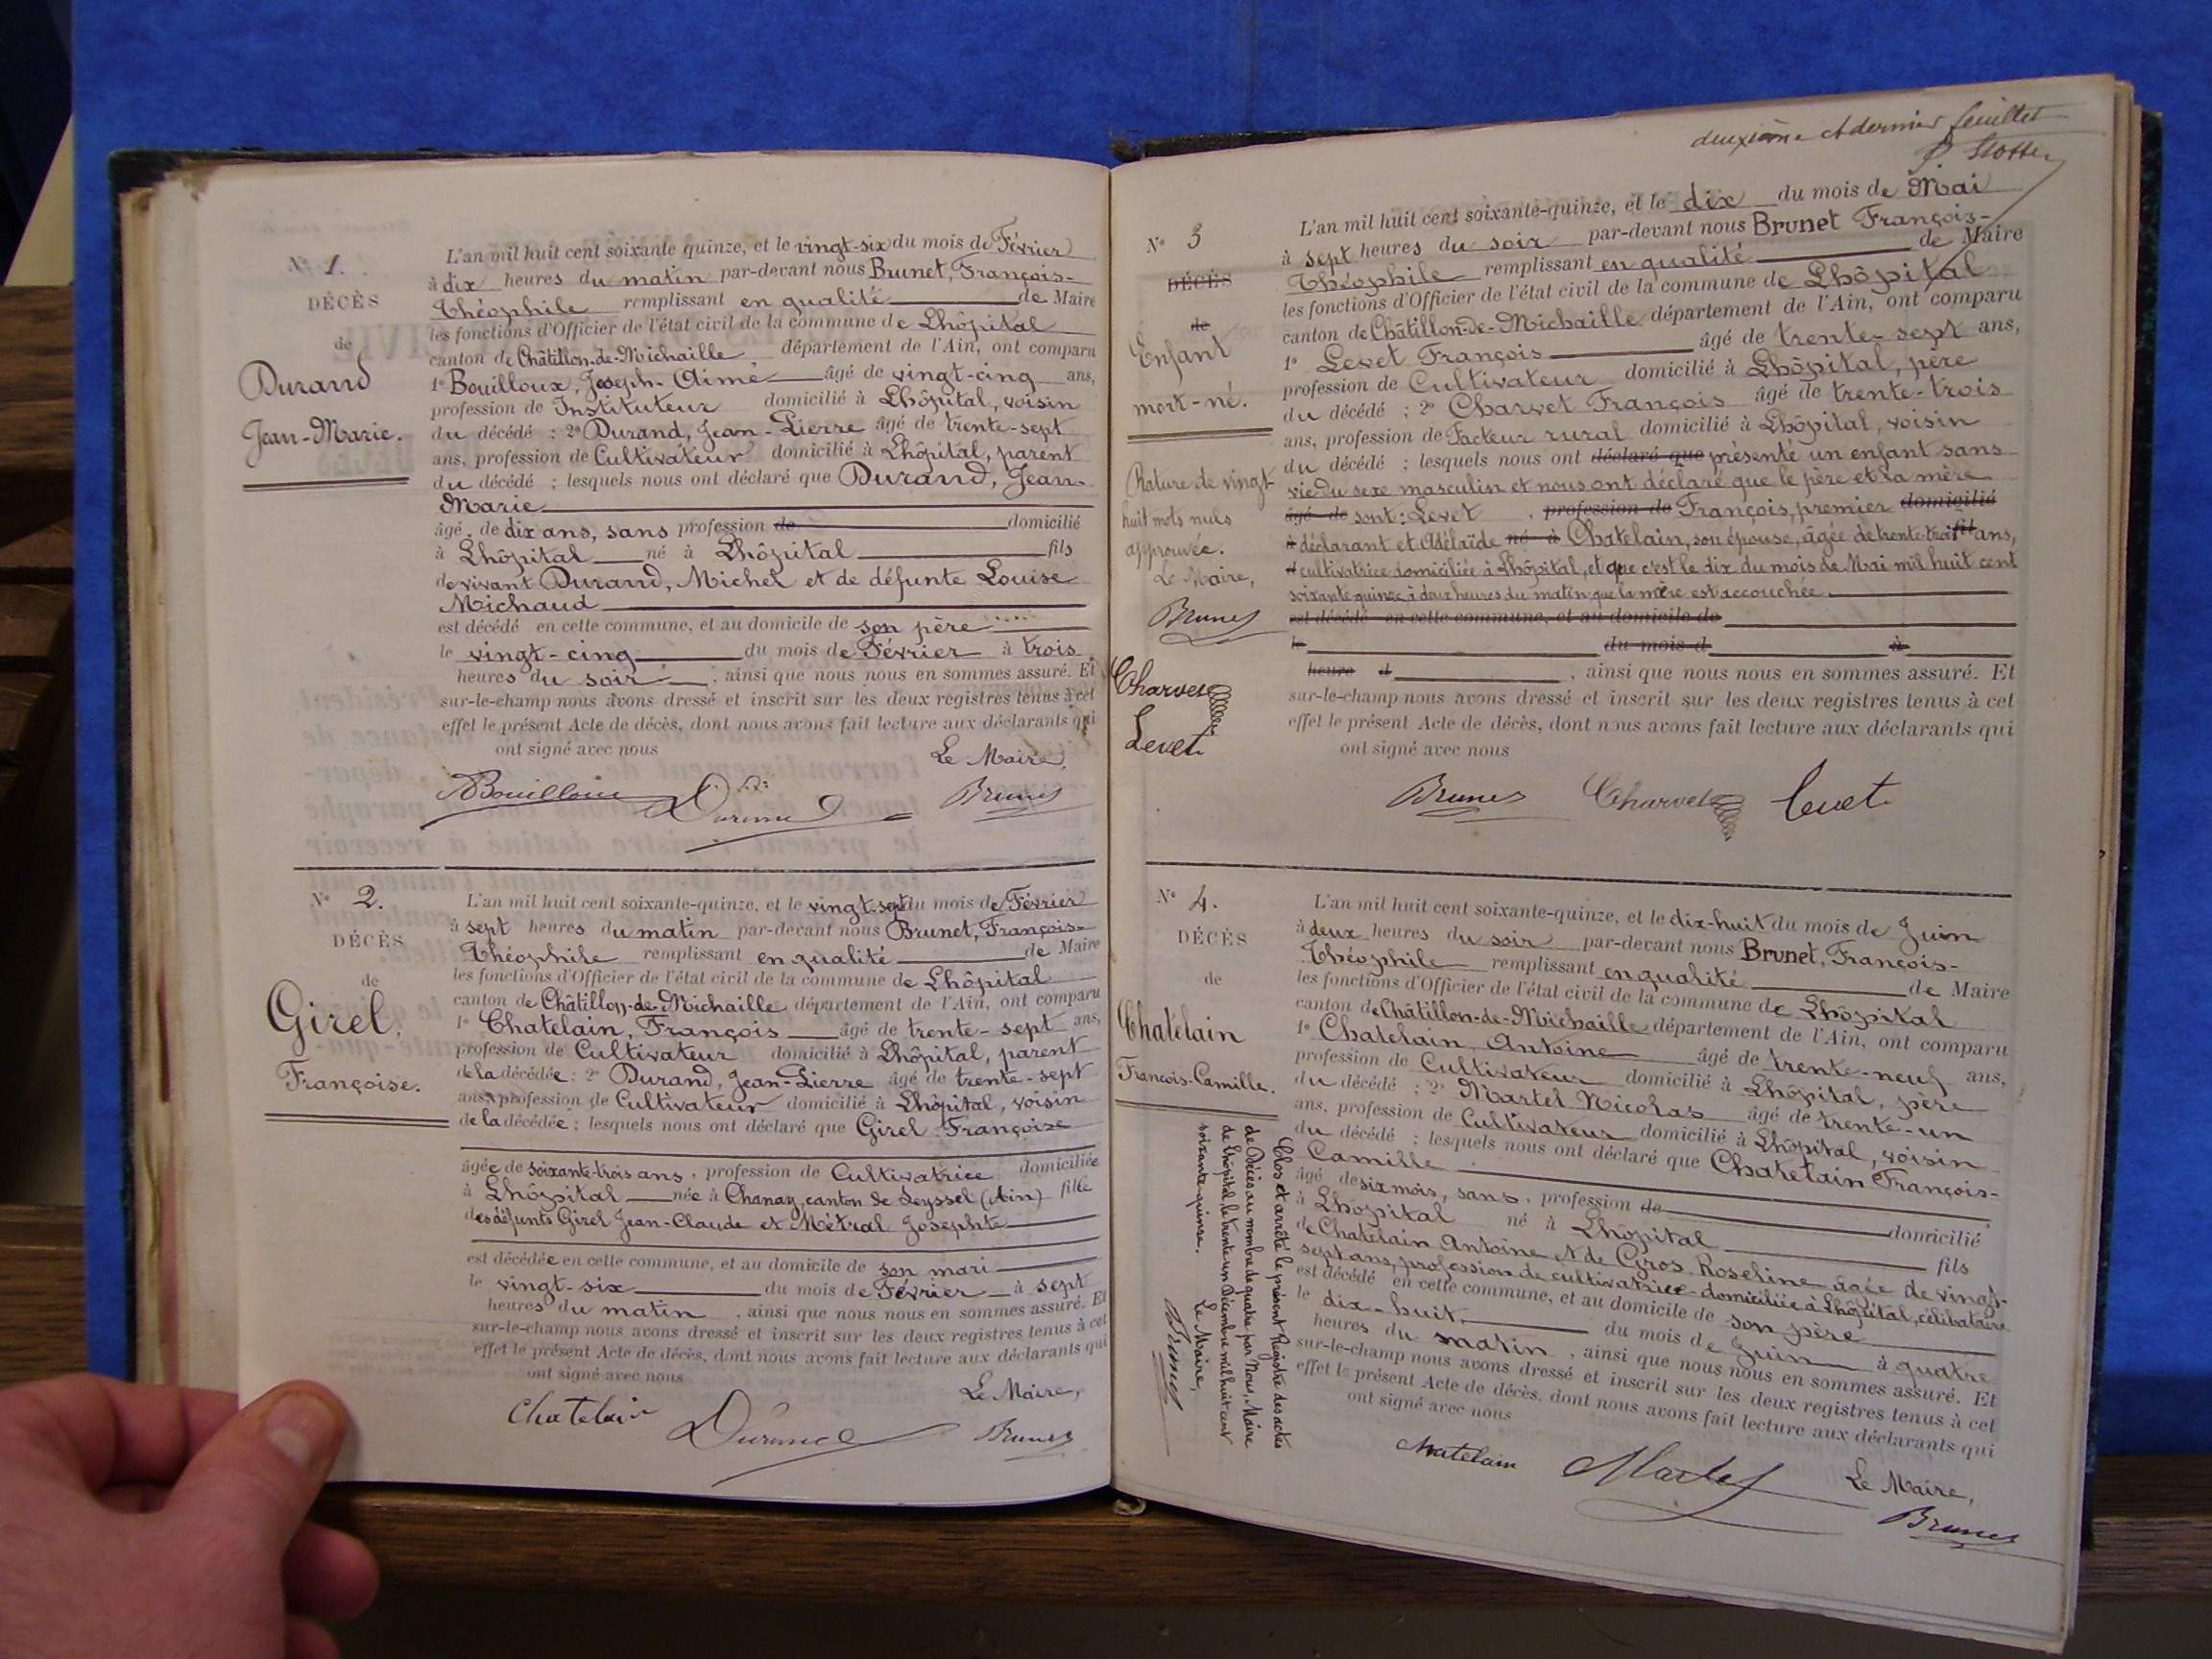 N° 1.
DÉCÈS
de
Durand
Jean-Marie.
L'an mil huit cent soixante quinze, et le vingt-six du mois de Février
à dix heures du matin par-devant nous Brunet, François-
Théophile remplissant en qualité de Maire
les fonctions d'Officier de l'état civil de la commune de Lhôpital
canton de Châtillon-de-Michaille département de l'Ain, ont comparu
1° Bouilloux, Joseph-Aimé âgé de vingt-cinq ans,
profession de Instituteur domicilié à Lhôpital, voisin
du décédé ; 2° Durand, Jean-Pierre âgé de trente-sept
ans, profession de Cultivateur domicilié à Lhôpital, parent
du décédé ; lesquels nous ont déclaré que Durand, Jean-
Marie
âgé de dix ans, sans profession de domicilié
à Lhôpital né à Lhôpital fils
de vivant Durand, Michel et de défunte Louise
Michaud
est décédé en cette commune, et au domicile de son père
le vingt-cinq du mois de Février à trois
heures du soir, ainsi que nous nous en sommes assuré. Et
sur-le-champ nous avons dressé et inscrit sur les deux registres tenus à cet
effet le présent Acte de décès, dont nous avons fait lecture aux déclarants qui
ont signé avec nous
Le Maire,
Bouilloux Durand Brunet
N° 2.
DÉCÈS
de
Girel,
Françoise.
L'an mil huit cent soixante-quinze, et le vingt-sept du mois de Février
à sept heures du matin par-devant nous Brunet, François-
Théophile remplissant en qualité de Maire
les fonctions d'Officier de l'état civil de la commune de Lhôpital
canton de Châtillon-de-Michaille département de l'Ain, ont comparu
1° Chatelain, François âgé de trente-sept ans,
profession de Cultivateur domicilié à Lhôpital, parent
de la décédée ; 2° Durand, Jean-Pierre âgé de trente-sept
ans, profession de Cultivateur domicilié à Lhôpital, voisin
de la décédée ; lesquels nous ont déclaré que Girel Françoise
âgée de soixante-trois ans, profession de Cultivatrice domiciliée
à Lhôpital née à Chanay, canton de Seyssel (Ain) fille
des défunts Girel Jean-Claude et Métral Josephte
est décédée en cette commune, et au domicile de son mari
le vingt-six du mois de Février à sept
heures du matin, ainsi que nous nous en sommes assuré. Et
sur-le-champ nous avons dressé et inscrit sur les deux registres tenus à cet
effet le présent Acte de décès, dont nous avons fait lecture aux déclarants qui
ont signé avec nous
Le Maire,
Chatelain Durand Brunet
deuxième et dernier feuillet
N° 3
DÉCÈS
de
Enfant
mort-né.
Rature de vingt-
huit mots nuls
approuvée.
Le Maire,
Brunet
Charvet
Levet
L'an mil huit cent soixante-quinze, et le dix du mois de Mai
à sept heures du soir par-devant nous Brunet François-
Théophile remplissant en qualité de Maire
les fonctions d'Officier de l'état civil de la commune de Lhôpital
canton de Châtillon-de-Michaille département de l'Ain, ont comparu
1° Levet François âgé de trente-sept ans,
profession de Cultivateur domicilié à Lhôpital, père
du décédé ; 2° Charvet François âgé de trente-trois
ans, profession de Facteur rural domicilié à Lhôpital, voisin
du décédé ; lesquels nous ont déclaré que présenté un enfant sans
vie du sexe masculin et nous ont déclaré que le père et la mère
âgé de sont : Levet, profession de François, premier domicilié
à déclarant et Adélaïde né à Chatelain, son épouse, âgée de trente-trois fils ans,
d cultivatrice domiciliée à Lhôpital, et que c'est le dix du mois de Mai mil huit cent
soixante quinze, à deux heures du matin que la mère est accouchée
est décédé en cette commune, et au domicile de
le du mois d à
heure d, ainsi que nous nous en sommes assuré. Et
sur-le-champ nous avons dressé et inscrit sur les deux registres tenus à cet
effet le présent Acte de décès, dont nous avons fait lecture aux déclarants qui
ont signé avec nous
Brunet Charvet Levet
N° 4.
DÉCÈS
de
Chatelain
François-Camille.
L'an mil huit cent soixante-quinze, et le dix-huit du mois de Juin
à deux heures du soir par-devant nous Brunet, François-
Théophile remplissant en qualité de Maire
les fonctions d'Officier de l'état civil de la commune de Lhôpital
canton de Châtillon-de-Michaille département de l'Ain, ont comparu
1° Chatelain Antoine âgé de trente-neuf ans,
profession de Cultivateur domicilié à Lhôpital, père
du décédé ; 2° Martel Nicolas âgé de trente-un
ans, profession de Cultivateur domicilié à Lhôpital, voisin
du décédé ; lesquels nous ont déclaré que Chatelain François-
Camille
âgé de six mois, sans, profession de domicilié
à Lhôpital né à Lhôpital fils
de Chatelain Antoine et de Gros Roseline âgée de vingt-
sept ans, profession de cultivatrice domiciliée à Lhôpital, célibataire
est décédé en cette commune, et au domicile de son père
le dix-huit du mois de Juin à quatre
heures du matin, ainsi que nous nous en sommes assuré. Et
sur-le-champ nous avons dressé et inscrit sur les deux registres tenus à cet
effet le présent Acte de décès, dont nous avons fait lecture aux déclarants qui
ont signé avec nous
Chatelain Martel Le Maire,
Brunet
Clos et arrêté le présent Registre des actes
de Décès au nombre de quatre par Nous, Maire
de Lhôpital, le trente-un Décembre mil huit cent
soixante-quinze. Le Maire,
Brunet